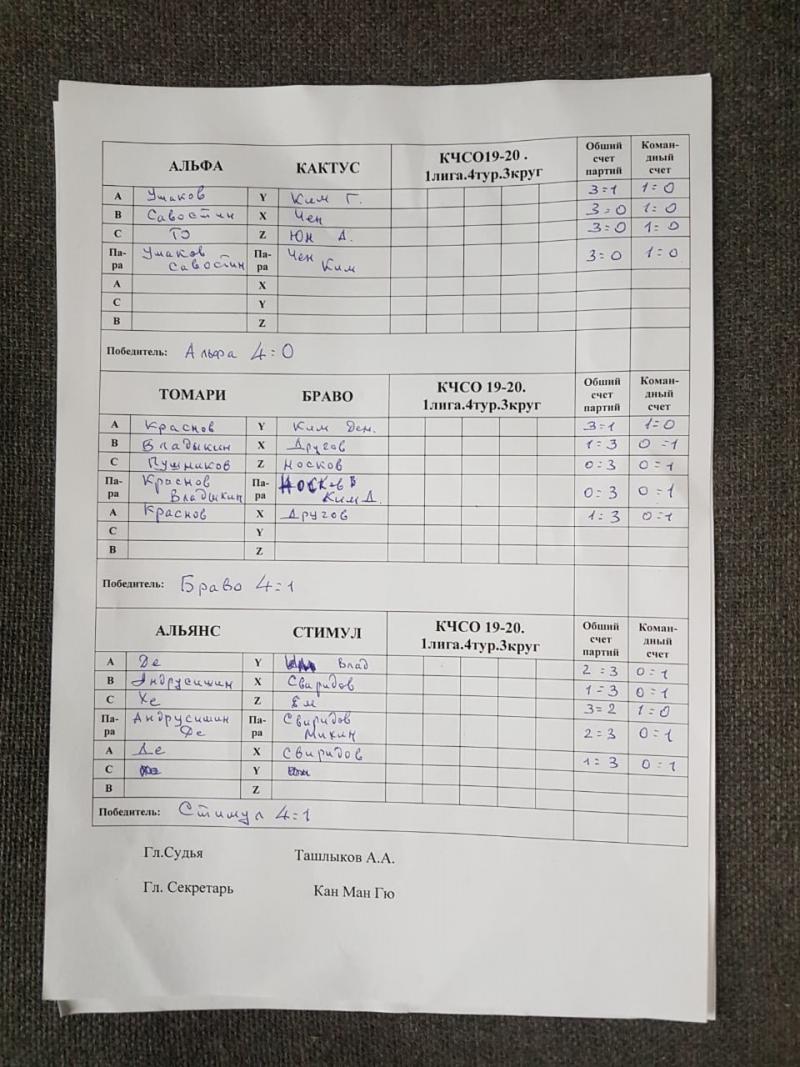 АЛЬФА КАКТУС КЧСО19-20 . 1лига.4тур.3круг Общий счет партий Коман-дный счет
A Ушаков Y Ким Г. 3=1 1=0
B Савостин X Чен 3=0 1=0
C Тэ Z Юн А. 3=0 1=0
Па-ра Ушаков Савостин Па-ра Чен Ким 3=0 1=0
A X
C Y
B Z
Победитель: Альфа 4=0
ТОМАРИ БРАВО КЧСО 19-20. 1лига.4тур.3круг Общий счет партий Коман-дный счет
A Краснов Y Ким Ден. 3=1 1=0
B Владыкин X Другов 1=3 0=1
C Пушников Z Носков 0=3 0=1
Па-ра Краснов Владыкин Па-ра Носков Ким Д. 0=3 0=1
A Краснов X Другов 1=3 0=1
C Y
B Z
Победитель: Браво 4=1
АЛЬЯНС СТИМУЛ КЧСО 19-20. 1лига.4тур.3круг Общий счет партий Коман-дный счет
A Де Y Влад 2=3 0=1
B Андрусишин X Свиридов 1=3 0=1
C Хе Z 3=2 1=0
Па-ра Андрусишин Де Па-ра Свиридов Михин 2=3 0=1
A Де X Свиридов 1=3 0=1
C Y
B Z
Победитель: Стимул 4=1
Гл.Судья Ташлыков А.А.
Гл. Секретарь Кан Ман Гю